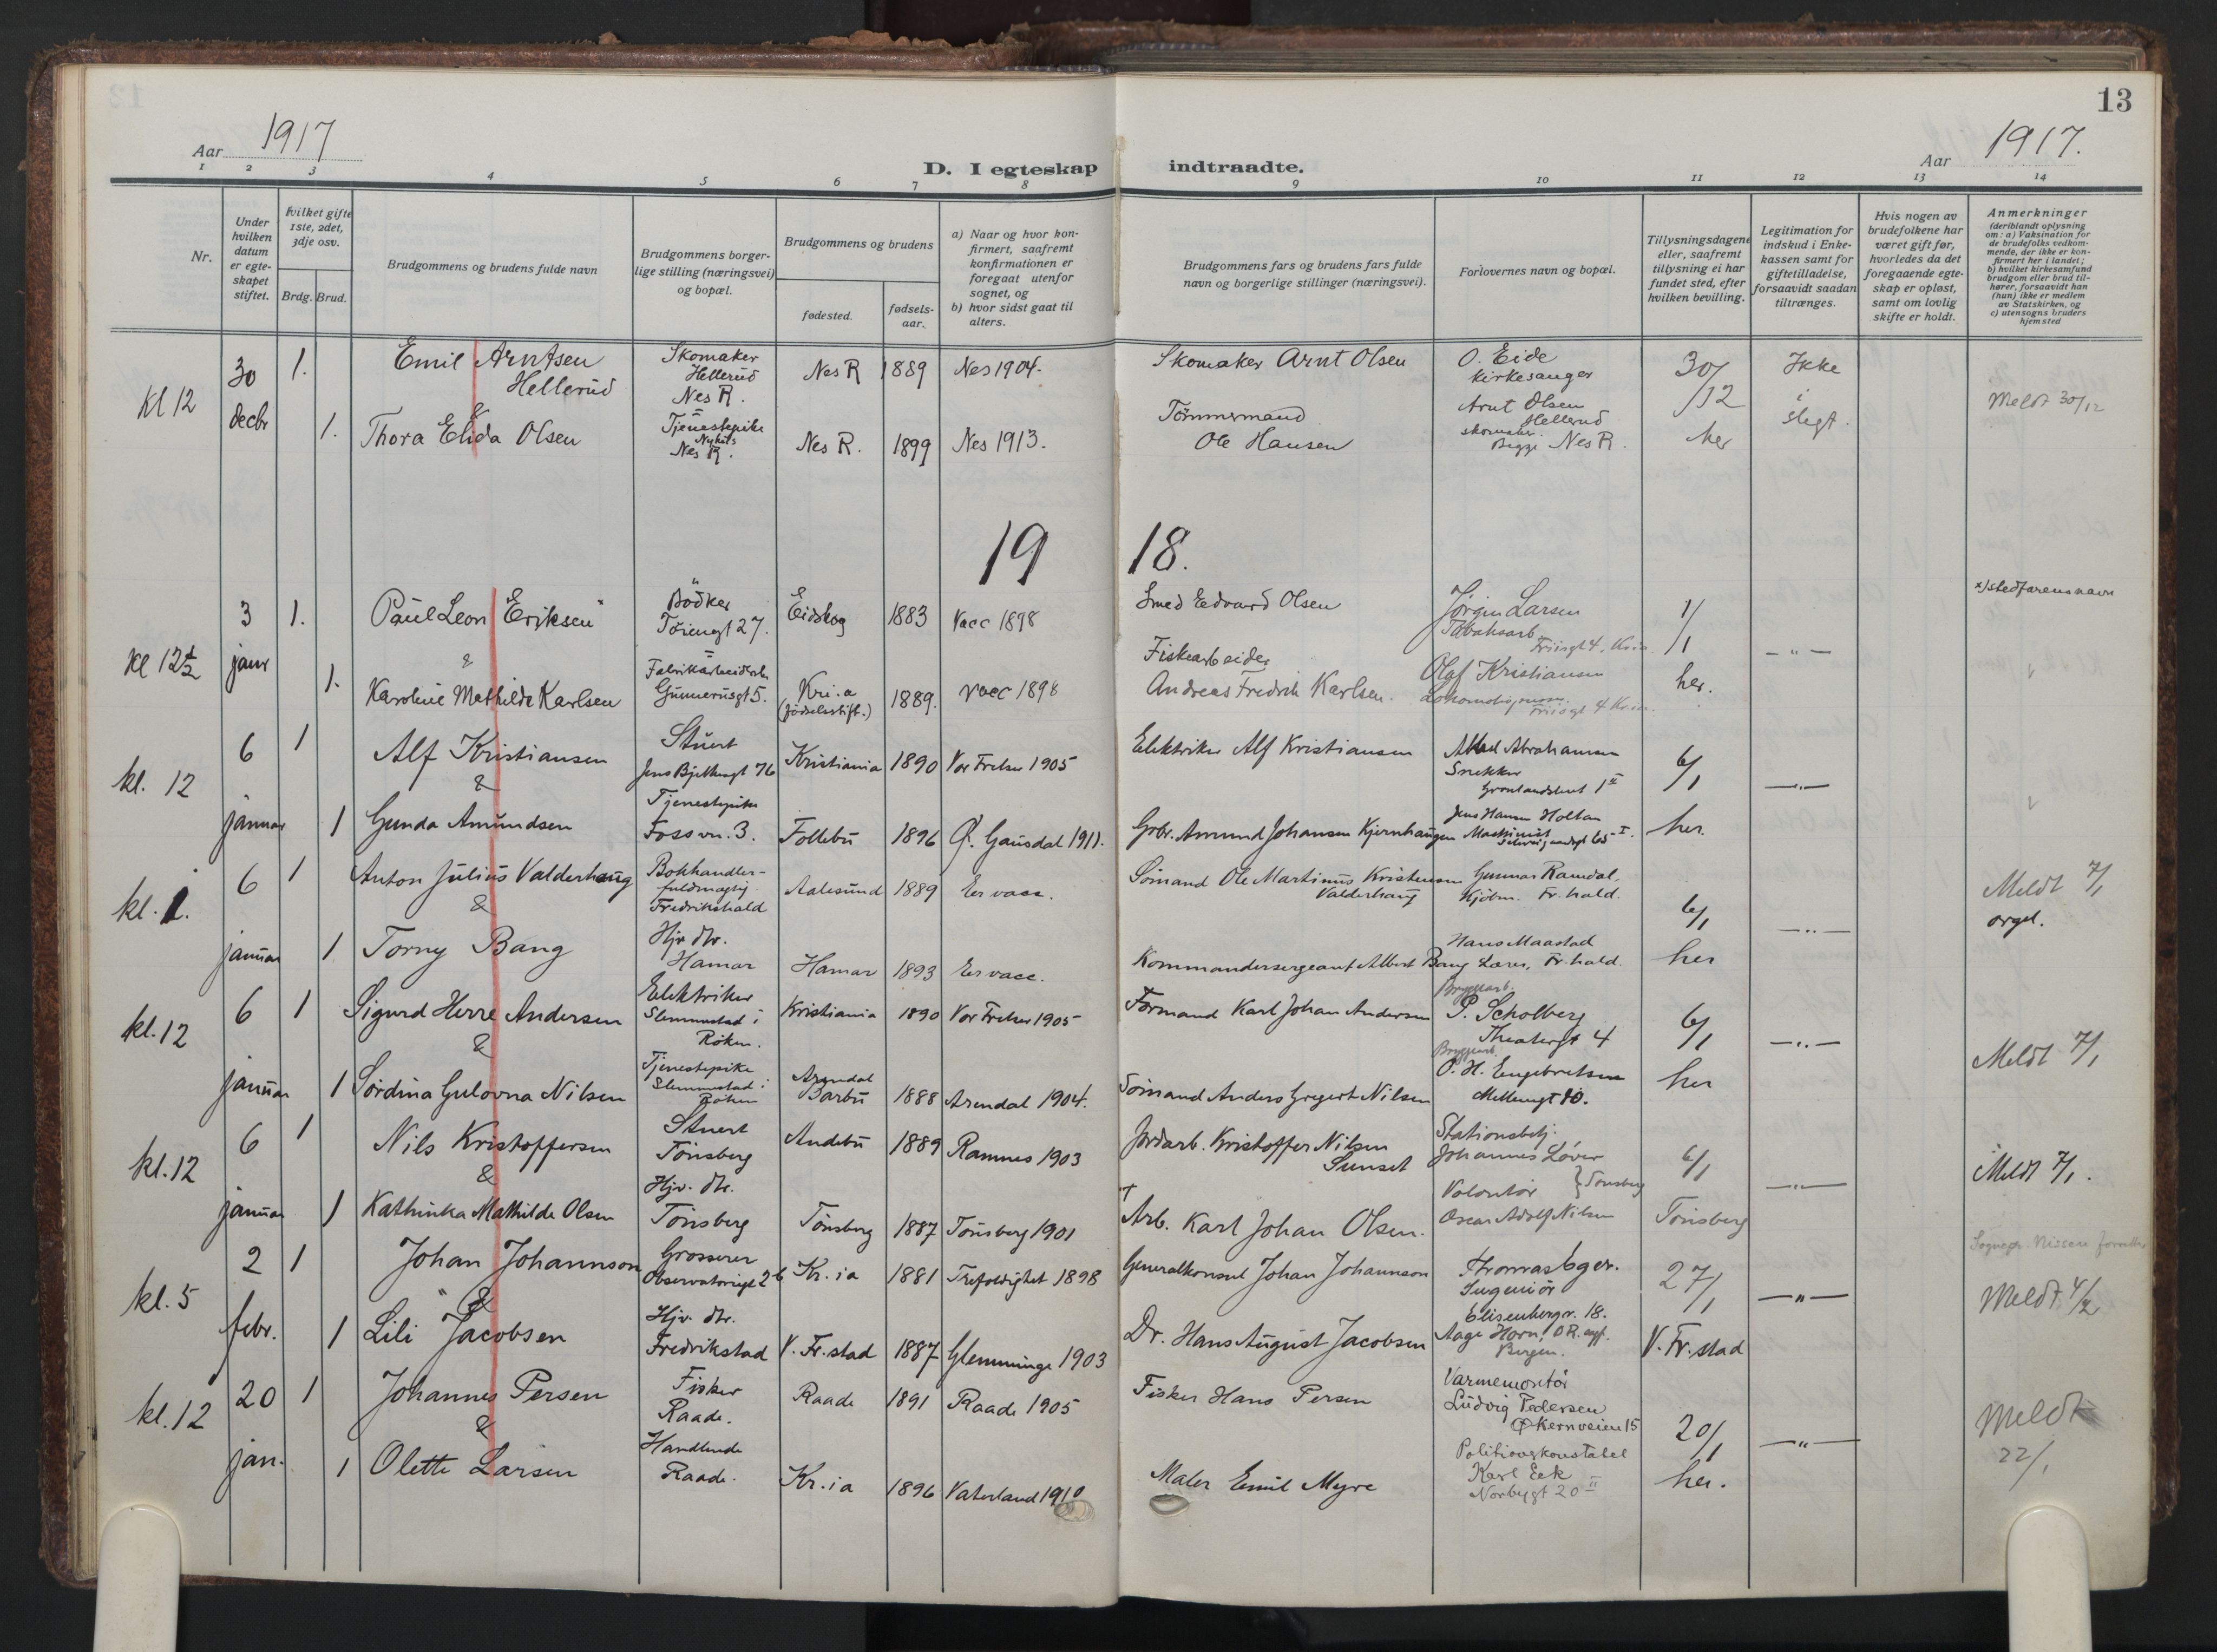 13
Aar 1917
D. I egteskap indtraadte.
Aar 1917.
1 2 3 4 5 6 7 8 9 10 11 12 13 14
Nr.
Under hvilken datum er egteskapet stiftet.
Hvilket gifte 1ste, 2det, 3dje osv.
Brdg. Brud.
Brudgommens og brudens fulde navn
Brudgommens borgerlige stilling (næringsvei) og bopæl.
Brudgommens og brudens
fødested.
fødselsaar.
a) Naar og hvor konfirmert, saafremt konfirmationen er foregaat utenfor sognet, og
b) hvor sidst gaat til alters.
Brudgommens fars og brudens fars fulde navn og borgerlige stillinger (næringsvei).
Forlovernes navn og bopæl.
Tillysningsdagene eller, saafremt tillysning ei har fundet sted, efter hvilken bevilling.
Legitimation for indskud i Enkekassen samt for giftetilladelse, forsaavidt saadan tiltrænges.
Hvis nogen av brudefolkene har været gift før, hvorledes da det foregaaende egteskap er opløst, samt om lovlig skifte er holdt.
Anmerkninger (deriblandt oplysning om: a) Vaksination for de brudefolks vedkommende, der ikke er konfirmert her i landet; b) hvilket kirkesamfund brudgom eller brud tilhører, forsaavidt han (hun) ikke er medlem av Statskirken, og c) utensogns bruders hjemsted
Kl 12 30 decbr 1. Emil Arntsen Hellerud Skomaker Hellerud Nes R. Nes R 1889 Nes 1904. Skomaker Arnt Olsen O. Eide kirkesanger 30/12 her Ikke i slegt. Meldt 30/12
&
1. Thora Elida Olsen Tjenestepike Nes R. Nes R. 1899 Nes 1913. Tømmermand Ole Hansen Arnt Olsen Hellerud skomaker Begge Nes R.
1918.
Kl 12½ 3 janr 1. Paul Leon Eriksen Bödker Töiengt 27. Eidskog 1883 Vacc 1898 Smed Edvard Olsen Jörgen Larsen Tobaksarb. Friisgt 4, Kria. 1/1 her. -"- x) stedfarens navn
&
1. Karoline Mathilde Karlsen Fabrikarbeiderske Gunnerusgt 5. Kri.a (fødselsstift.) 1889. vacc 1898 Fiskearbeider Andreas Fredrik Karlsen. Olaf Kristiansen Friisgt 4 Kr.ia.
kl. 12 6 januar 1 Alf Kristiansen Stuert Jens Bjelkesgt 76 Kristiania 1890 Vor Frelser 1905 Elektriker Alf Kristiansen Abrahamsen Snekker 6/1 her. -"-
&
1 Gunda Amundsen Tjenestepike Fossvn. 3. Follebu 1896 Ø. Gausdal 1911. Grbr. Amund Johansen Kjernhaugen Jens Hansen Holtan Maskinist
kl. 1. 6 januar 1 Anton Julius Valderhaug Bokhandlerfuldmægtig Fredrikshald Aalesund 1889 Er vacc. Sömand Ole Martinus Kristensen Valderhaug Gunnar Ramdal. Kjöbm. Fr.hald. 6/1 her -"- Meldt 7/1 orgel.
&
1 Torny Bang Hjv dtr. Hamar Hamar 1893 Er vacc. Kommandersergeant Albert Bang Hans Maastad Lærer, Fr.hald.
kl. 12 6 januar 1 Sigurd Herre Andersen Elektriker Slemmestad i Röken. Kristiania 1890 Vor Frelser 1905 Formand Karl Johan Andersen Bryggearb. P. Scholberg Theatergt 4 6/1 her -"- Meldt 7/1
&
1 Sordina Gulovna Nilsen Tjenestepike Slemmestad i Röken Arendal Barbu 1888 Arendal 1904. Sömand Anders Gregert Nilsen Bryggearb. O. H. Engebretsen Möllergt 10.
kl. 12 6 januar 1 Nils Kristoffersen Stuert Tönsberg Andebu 1889 Ramnes 1903 Jordarb. Kristoffer Nilsen Sunset Stationsbetj. Johannes Løver 6/1 Tönsberg -"- Meldt 7/1.
&
1 Kathinka Mathilde Olsen Hjv. dtr. Tönsberg Tönsberg 1887 Tönsberg 1901 Arb. Karl Johan Olsen. Volontör Oscar Adolf Nilsen } Tönsberg
kl. 5 2 febr. 1 Johan Johannson Grosserer Observatoriegt 26 Kr.ia 1881 Trefoldighet 1898 Generalkonsul Johan Johannson Thomas Eger. Ingeniör Elisenbergv. 18. 27/1 V. Fr.stad -"- Sognepr. Nissen forrettet Meldt 4/2
&
1 Lili Jacobsen Hjv. dtr. Fredrikstad V. Fr.stad 1887 Glemminge 1903 Dr. Hans August Jacobsen Aage Horn, O.R. Bergen.
kl. 12 20 jan. 1 Johannes Persen Fisker Raade. Raade 1891 Raade 1905 Fisker Hans Persen Varmemontör Ludvig Pedersen Økernveien 15 20/1 her. -"- Meldt 22/1
&
1 Olette Larsen Handlende Raade. Kr.ia 1896 Vaterland 1910 Maler Emil Myre Politioverkonstabel Karl Eek Norbygt 20 II